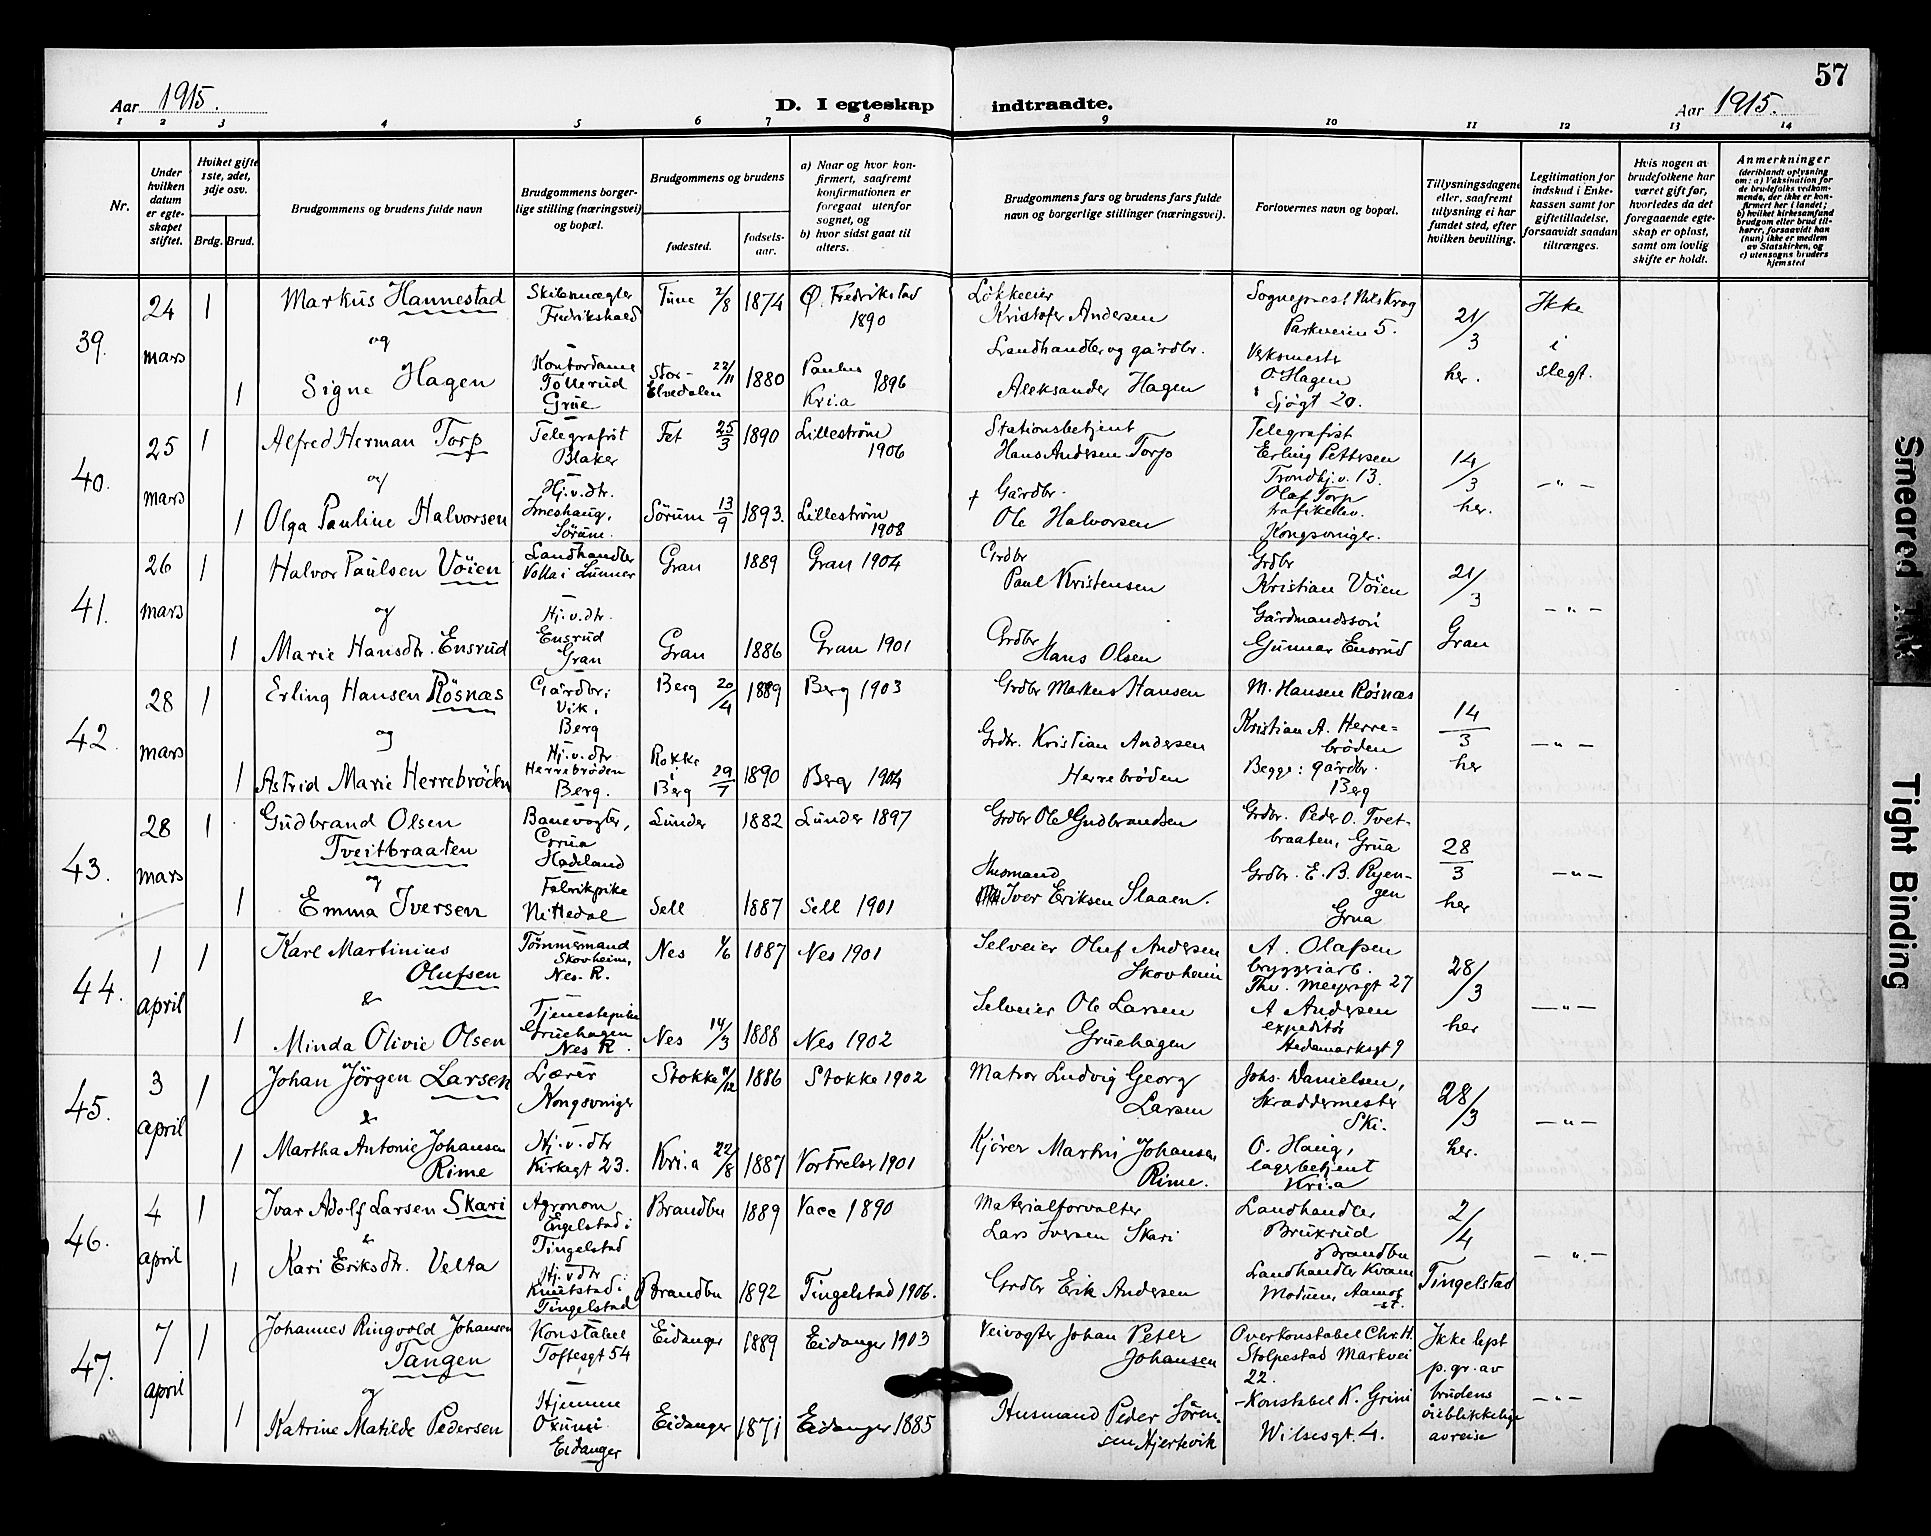 57
Aar 1915.
D. I egteskap indtraadte.
Aar 1915.
1 2 3 4 5 6 7 8 9 10 11 12 13 14
Nr.
Under hvilken datum er egteskapet stiftet.
Hviket gifte 1ste, 2det, 3dje osv.
Brdg. Brud.
Brudgommens og brudens fulde navn
Brudgommens borgerlige stilling (næringsvei) og bopæl.
Brudgommens og brudens
fødested.
fødselsaar.
a) Naar og hvor konfirmert, saafremt konfirmationen er foregaat utenfor sognet, og
b) hvor sidst gaat til alters.
Brudgommens fars og brudens fars fulde navn og borgerlige stillinger (næringsvei).
Forlovernes navn og bopæl.
Tillysningsdagene eller, saafremt tillysning ei har fundet sted, efter hvilken bevilling.
Legitimation for indskud i Enkekassen samt for giftetilladelse, forsaavidt saadan tiltrænges.
Hvis nogen av brudefolkene har været gift før, hvorledes da det foregaaende egteskap er opløst, samt om lovlig skifte er holdt.
Anmerkninger
(deriblandt oplysning om: a) Vaksination for de brudefolks vedkommende, der ikke er konfirmert her i landet; b) hvilket kirkesamfund brudgom eller brud tilhører, forsaavidt han (hun) ikke er medlem av Statskirken, og c) utensogns bruders hjemsted
39. 24 mars 1 Markus Hannestad Fredrikshald Tune 2/8 1874 Ø. Fredrikstad 1890 Løkkeeier Kristofer Andersen Sogneprest Nils Krog Parkveien 5. 21/3 her. Ikke i slegt.
og
1 Signe Hagen Kontordame Tollerud Grue Stor-Elvedalen 22/11 1880 Paulus Kri.a 1896 Landhandler og gårdbr. Aleksander Hagen Verksmester O. Hagen Sjøgt 20.
40. 25 mars 1 Alfred Herman Torp Telegrafist Blaker Fet 25/3 1890 Lillestrøm 1906 Stationsbetjent Hans Andersen Torp Telegrafist Erling Pettersen Trondhj.v. 13. 14/3 her. —„—
og
1 Olga Pauline Halvorsen Hj.v.dtr. Imeshaug, Sørum. Sørum 13/9 1893. Lillestrøm 1908 + Gårdbr. Ole Halvorsen Olaf Torp trafikelev. Kongsvinger.
41. 26 mars 1 Halvor Paulsen Vøien Landhandler Volla i Lunner Gran 1889 Gran 1904 Grdbr Paul Kristensen Grdbr Kristian Vøien 21/3 Gran —„—
og
1 Marie Hansdtr. Ensrud Hj.v.dtr. Ensrud Gran Gran 1886 Gran 1901 Grdbr Hans Olsen Gårdmandssøn Gunnar Ensrud
42. 28 mars 1 Erling Hansen Røsnæs Gårdbr. Vik, Berg Berg 20/4 1889 Berg 1903 Grdbr Markus Hansen M. Hansen Røsnæs 14/3 her —„—
og
1 Astrid Marie Herrebrøden Hj.v.dtr Herrebrøden Berg. Rokke i Berg 29/7 1890 Berg 1904 Grdbr. Kristian Andersen Herrebrøden Kristian A. Herrebrøden Begge: gårdbr. Berg
43. 28 mars 1 Gudbrand Olsen Tveitbraaten Banevogter, Grua Hadeland Lunder 1882 Lunder 1897 Grdbr Ole Gudbrandsen Grdbr. Peder O. Tvetbraaten, Grua 28/3 her —„—
og
1 Emma Iversen Fabrikpike Nittedal Sell 1887 Sell 1901 Husmand Iver Eriksen Slaaen. Grdbr. E. B. Ryengen Grua
44. 1 april 1 Karl Martinius Olufsen Tømmermand Skovheim, Nes. R. Nes 1/6 1887 Nes 1901 Selveier Oluf Andersen Skovheim A. Olafsen bryggeriarb. Thv. Meyersgt 27 28/3 her —„—
&
1 Minda Olivie Olsen Tjenestepike Gruehagen Nes R. Nes 14/3 1888 Nes 1902 Selveier Ole Larsen Gruehagen A Andersen expeditør Hedemarksgt 9
45. 3 april 1 Johan Jørgen Larsen Lærer Kongsvinger Stokke 11/12 1886 Stokke 1902 Matros Ludvig Georg Larsen Johs. Danielsen, Skræddermester Ski. 28/3 her. —„—
&
1 Martha Antonie Johansen Rime Hj.v.dtr Kirkegt 23. Kri.a 22/8 1887 Vor Frelser 1901 Kjører Martin Johansen Rime. O. Haug, lagerbetjent Kri.a
46. 4 april 1 Ivar Adolf Larsen Skari Agronom Engelstad i Tingelstad Brandbu 1889 1890 Materialforvalter Lars Iversen Skari Landhandler Bruxrud Brandbu 2/4 Tingelstad —„—
&
1 Kari Eriksdtr. Velta Hj.v.dtr Knutstad i Tingelstad Brandbu 1892 Tingelstad 1906. Grdbr Erik Andersen Landhandler Kvam Moduen, Aamot st.
47. 7 april 1 Johannes Ringvold Johansen Tangen Konstabel Toftesgt 54 Eidanger 1889 Eidanger 1903 Veivogter Johan Peter Johansen Overkonstabel Chr. H. Stolpestad Markvei 22. Ikke lyst p.gr. av brudens øieblikkelige avreise —„—
og
1 Katrine Matilde Pedersen Hjemme Eidanger Eidanger 1871 Eidanger 1885 Husmand Peder Sørensen Hjertevik Konstabel K. Grini Wilsesgt. 4.
Smeared Ink
Tight Binding